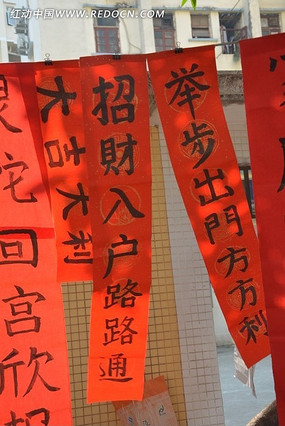 红动中国 WWW.REDOCN.COM
举步出門方方利
招財入户路路通
大吉大利
灵蛇回宫欣